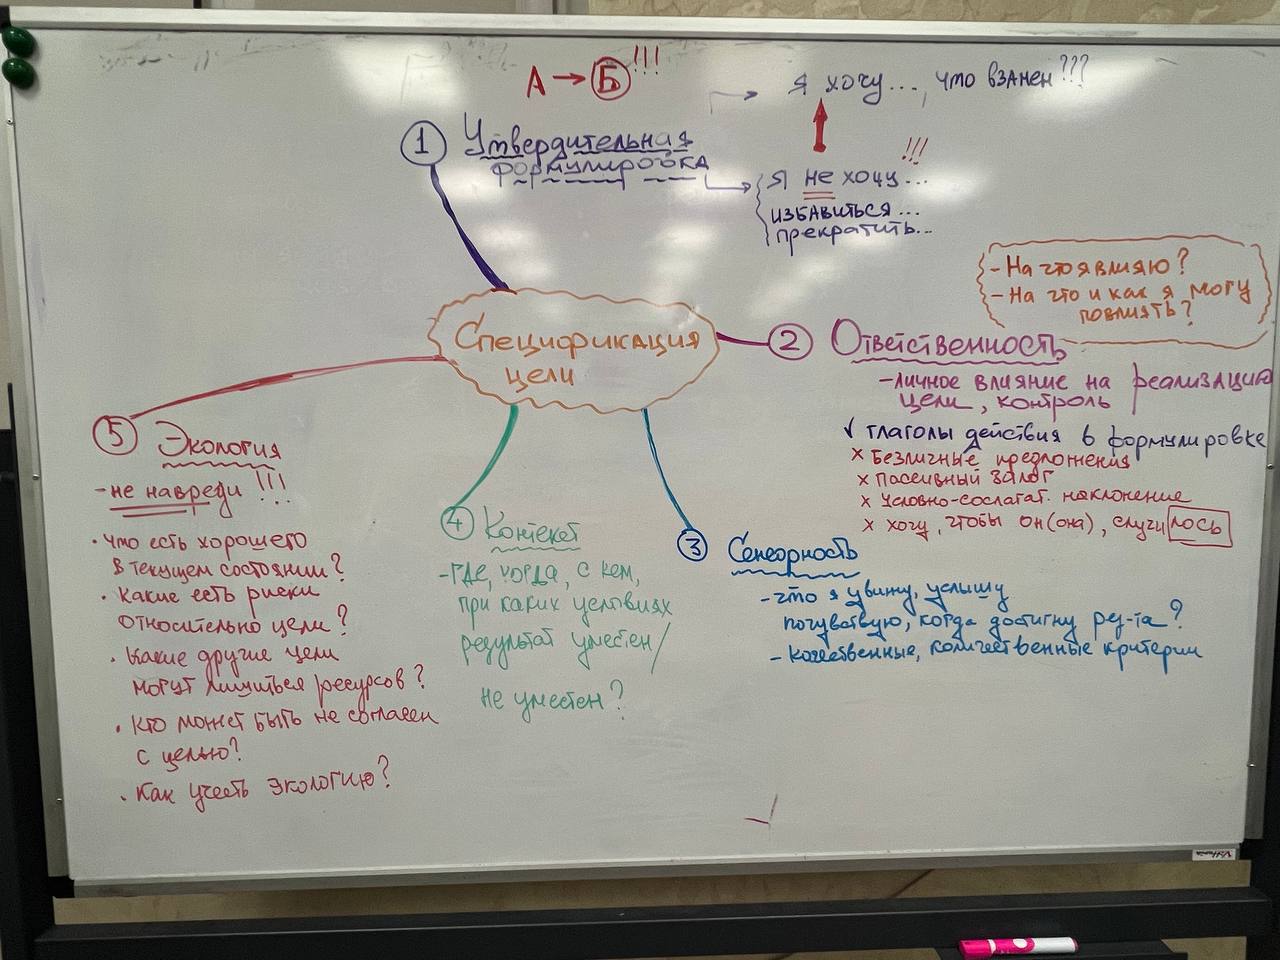 А → Б !!!
Я хочу..., что взамен???
1 Утвердительная
формулировка
!!!
Я не хочу...
избавиться...
прекратить...
Спецификация
цели
- На что я влияю?
- На что и как я могу
повлиять?
2 Ответственность
- личное влияние на реализацию
цели, контроль
√ глаголы действия в формулировке
x Безличные предложения
x Пассивный залог
x Условно-сослагат. наклонение
x хочу, чтобы он(она), случилось
3 Сенсорность
- что я увижу, услышу
почувствую, когда достигну рез-та?
- качественные, количественные критерии
4 Контекст
- где, когда, с кем,
при каких условиях
результат уместен/
не уместен?
5 Экология
- не навреди!!!
• что есть хорошего
в текущем состоянии?
• Какие есть риски
относительно цели?
• Какие другие цели
могут лишиться ресурсов?
• Кто может быть не согласен
с целью?
• Как учесть экологию?